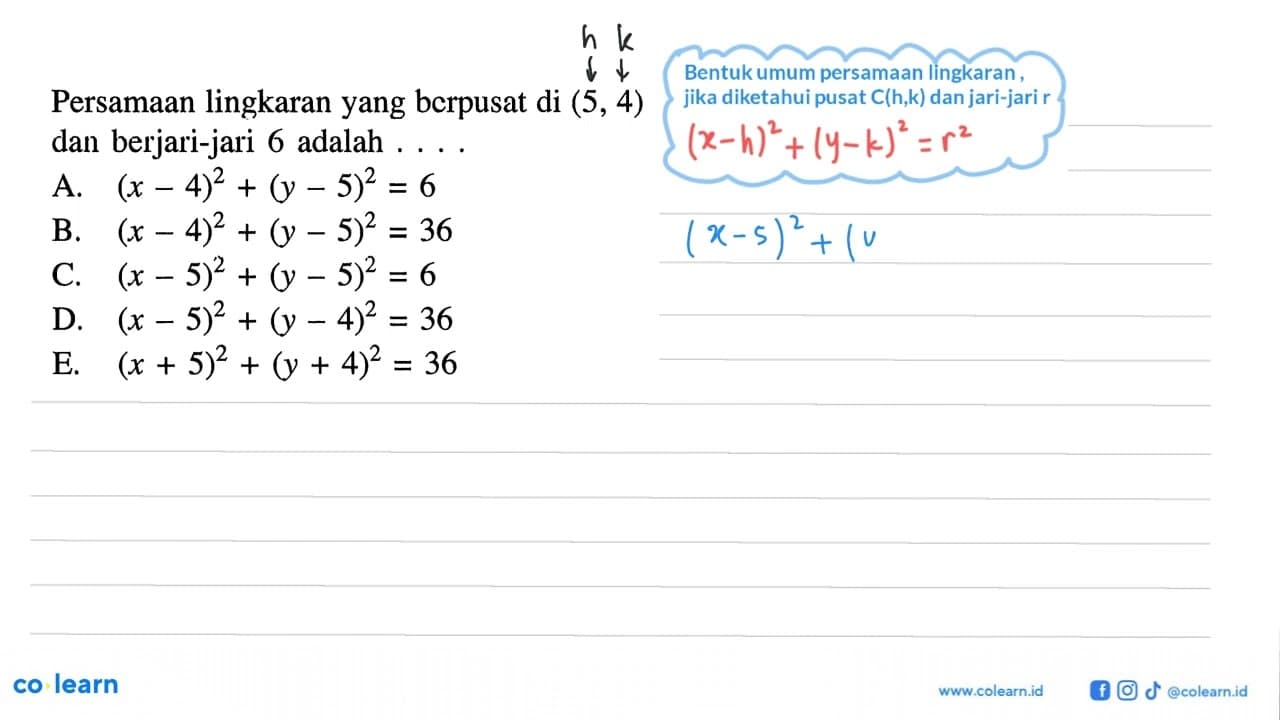 h k
↓ ↓
Persamaan lingkaran yang berpusat di (5, 4)
dan berjari-jari 6 adalah . . . .
A. (x – 4)² + (y – 5)² = 6
B. (x – 4)² + (y – 5)² = 36
C. (x – 5)² + (y – 5)² = 6
D. (x – 5)² + (y – 4)² = 36
E. (x + 5)² + (y + 4)² = 36
Bentuk umum persamaan lingkaran ,
jika diketahui pusat C(h,k) dan jari-jari r
(x-h)² + (y-k)² = r²
(x-5)² + (
co learn
www.colearn.id
@colearn.id